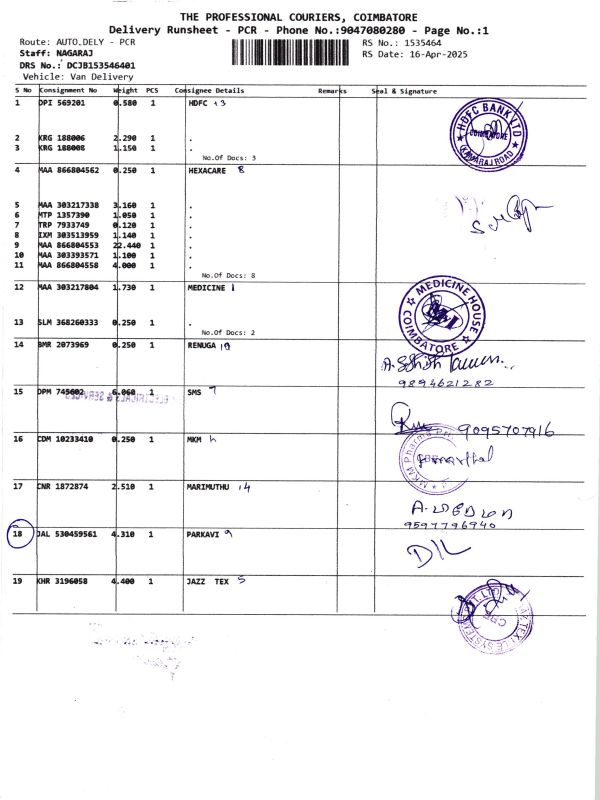 THE PROFESSIONAL COURIERS, COIMBATORE
Delivery Runsheet - PCR - Phone No.:9047080280 - Page No.:1
Route: AUTO.DELY - PCR
RS No.: 1535464
Staff: NAGARAJ
RS Date: 16-Apr-2025
DRS No.: DCJB153546401
Vehicle: Van Delivery
S No Consignment No Weight PCS Consignee Details Remarks Seal & Signature
1 DPI 569201 0.580 1 HDFC 13
HDFC BANK LTD COIMBATORE KAMARAJ ROAD
2 KRG 188006 2.290 1 .
3 KRG 188008 1.150 1 .
No.Of Docs: 3
4 MAA 866804562 0.250 1 HEXACARE 8
5 MAA 303217338 3.160 1 .
6 MTP 1357390 1.050 1 .
7 TRP 7933749 0.120 1 .
8 IXM 303513959 1.140 1 .
9 MAA 866804553 22.440 1 .
10 MAA 303393571 1.100 1 .
11 MAA 866804558 4.000 1 .
No.Of Docs: 8
12 MAA 303217804 1.730 1 MEDICINE 1
MEDICINE HOUSE COIMBATORE
13 SLM 368260333 0.250 1 .
No.Of Docs: 2
14 BMR 2073969 0.250 1 RENUGA 10
9894621282
15 DPM 745602 6.060 1 SMS 7
9095707916
16 CDM 10233410 0.250 1 MKM
MKM Pharma
17 CNR 1872874 2.510 1 MARIMUTHU 14
9597796940
18 JAL 530459561 4.310 1 PARKAVI 9
19 KHR 3196058 4.400 1 JAZZ TEX 5